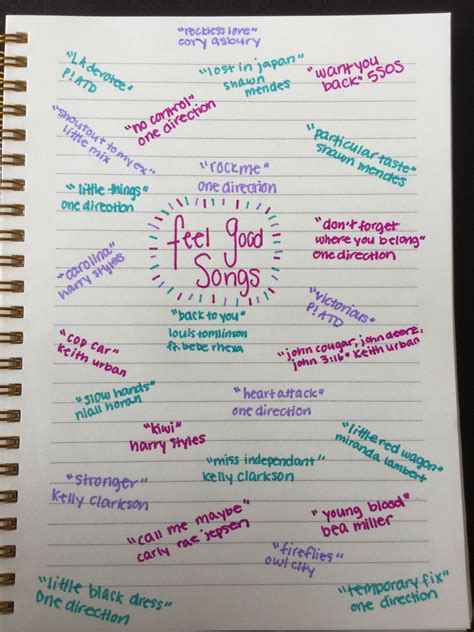 "reckless love"
cory asbury
"LA devotee"
P!ATD
"lost in japan"
shawn
mendes
"want you
back" 5SOS
"no control"
one direction
"shoutout to my ex"
little mix
"particular taste"
shawn mendes
"rock me"
one direction
"little things"
one direction
feel good
songs
"don't forget
where you belong"
one direction
"carolina"
harry styles
"victorious"
P!ATD
"back to you"
louis tomlinson
ft. bebe rhexa
"cop car"
keith urban
"john cougar, john deere,
john 3:16" keith urban
"slow hands"
niall horan
"heart attack"
one direction
"kiwi"
harry styles
"little red wagon"
miranda lambert
"miss independant"
kelly clarkson
"stronger"
kelly clarkson
"call me maybe"
carly rae jepsen
"young blood"
bea miller
"fireflies"
owl city
"little black dress"
one direction
"temporary fix"
one direction